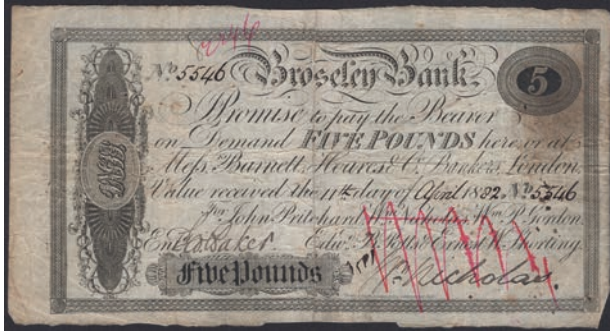 2446
No. 5546 Broseley Bank. 5
Promise to pay the Bearer
on Demand FIVE POUNDS here or at
Messrs. Barnett, Hoares & Co. Bankers, London.
Value received the 11th day of April 1882. No. 5546
For John Pritchard Wm. Nicholas Wm. P. Gordon
Edwd. B. Potts & Ernest W. Shorting
Five Pounds
Wm. Nicholas.